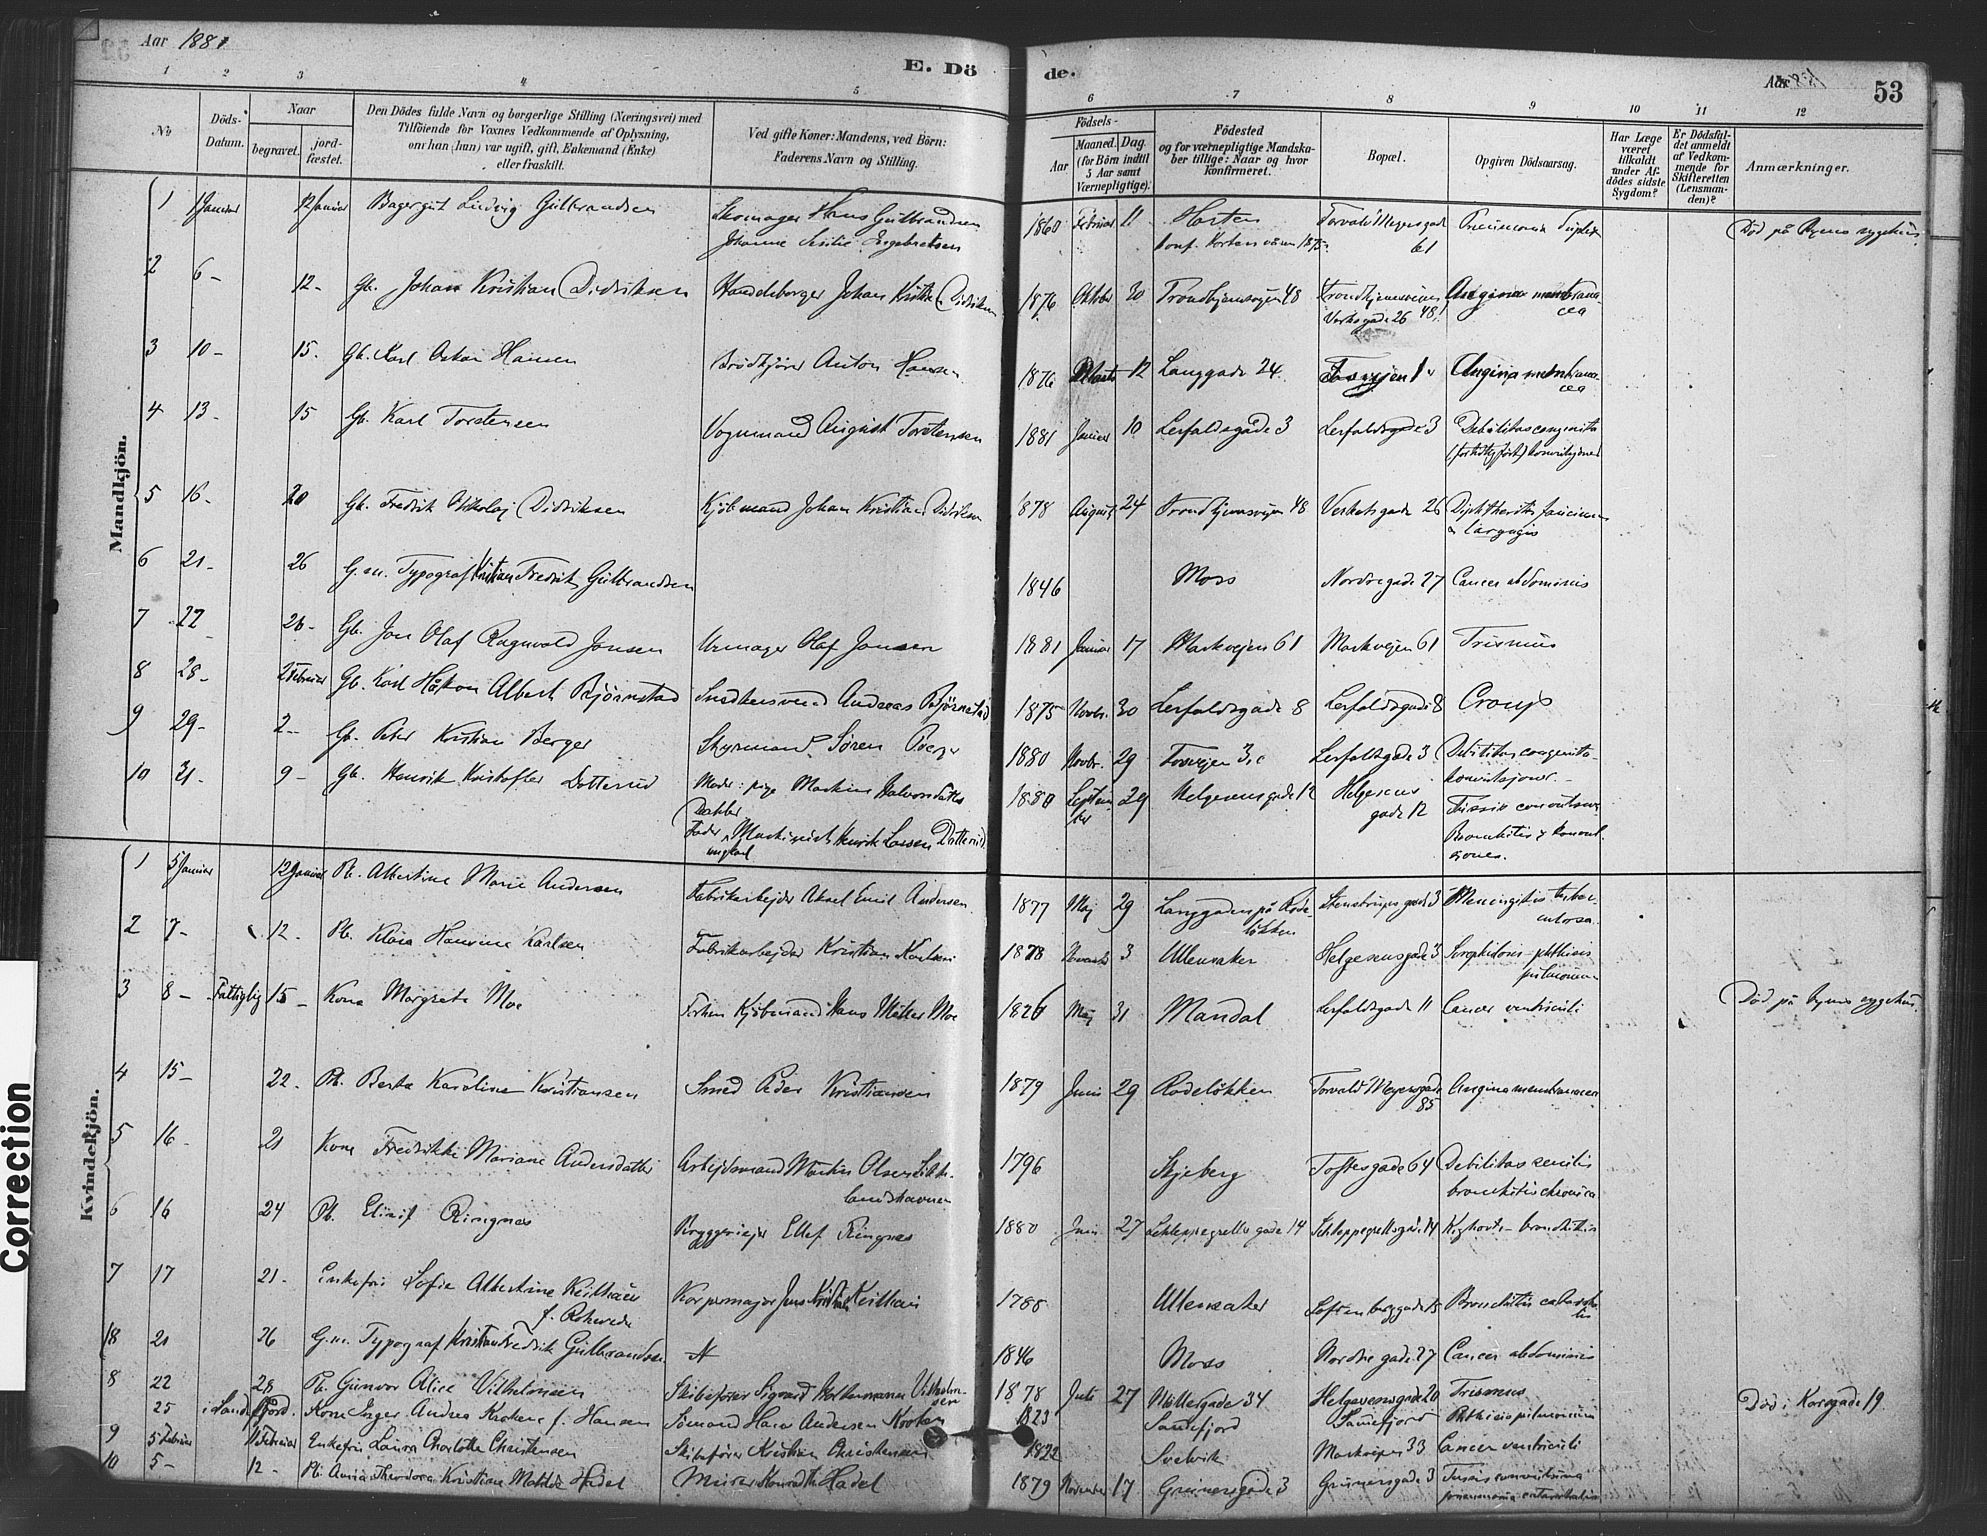 Aar 1881
E. Döde.
Aar 1881
53
1 2 3 4 5 6 7 8 9 10 11 12
No
Döds-Datum.
Naar
begravet.
jordfæstet.
Den Dödes fulde Navn og borgerlige Stilling (Næringsvei) med
Tilföiende for Voxnes Vedkommende af Oplysning,
om han (hun) var ugift, gift, Enkemand (Enke)
eller fraskilt.
Ved gifte Koner: Mandens, ved Börn:
Faderens Navn og Stilling.
Födsels-
Aar
Maaned. Dag.
(for Börn indtil
5 Aar samt
Værnepligtige).
Födested
og for værnepligtige Mandska-
ber tillige: Naar og hvor
konfirmeret.
Bopæl.
Opgiven Dödsaarsag.
Har Læge
været
tilkaldt
under Af-
dödes sidste
Sygdom?
Er Dödsfal-
det anmeldt
af Vedkom-
mende for
Skifteretten
(Lensman-
den)?
Anmærkninger.
Mandkjön.
1 1 Januar 12 Januar Bagergut Ludvig Gulbrandsen Skomager Hans Gulbrandsen 1860 Februar 11 Horten Torvald Meyersgade Pneumonia duplex Död på Byens sygehus
Johanne Engebretsen konf. Horten våren 1875 61
2 6 - 12 - Gb. Johan Kristian Didriksen Handelsborger Johan Kristian Didriksen 1876 Oktober 30 Trondhjemsvejen 48 Trondhjemsveien 48 Angina membrana-
Verksgade 26 cea
3 10 - 15 - Gb. Karl Oskar Hansen Brödkjörer Anton Hansen 1876 Marts 12 Langgade 24 Fossvejen 1 Angina membrana-
cea
4 13 - 15 Gb. Karl Torstensen Vognmand August Torstensen 1881 Januar 10 Lerfaldsgade 3 Lerfaldsgade 3 Debilitas congenita
(for tidlig födt) konvulsjoner
5 16 - 20 Gb. Fredrik Nikolaj Didriksen Kjöbmand Johan Kristian Didriksen 1878 August 24 Trondhjemsvejen 48 Verksgade 26 Diphtheritis faucium
& laryngis
6 21 - 26 G.m. Typograf Kristian Fredrik Gulbrandsen 1846 Moss Nordregade 27 Cancer abdominis
7 22 - 26 - Gb. Jon Olaf Ragnvald Jonsen Urmager Olaf Jonsen 1881 Januar 17 Markvejen 61 Markvejen 61 Trismus
8 28 - 2 Februar Gb. Karl Håkon Albert Bjørnstad Snedkersvend Andreas Bjørnstad 1875 Novbr. 30 Lerfaldsgade 8 Lerfaldsgade 8 Croup
9 29 - 2 - Gb. Peter Kristian Berger Styrmand Søren Berger 1880 Novbr. 29 Fossvejen 3c Lerfaldsgade 3 Debilitas congenita
konvulsjoner -
10 31 - 9 - Gb. Henrik Kristoffer Dotterud Moder: pige Martine Halvorsdatter 1880 Septem- 29 Helgesensgade 12 Helgesens Tussis convulsiva
Dakker ber gade 12 Bronchitis & konvul-
Fader: Maskinist Henrik Larsen Dotterud sjoner.
ungkarl
Kvindekjön.
1 5 Januar 12 Januar Pb. Albertine Marie Andersen Fabrikarbejder Aksel Emil Andersen 1877 Maj 29 Langgaden på Rode- Stenstrupsgade 3 Meningitis tuber-
løkken culosa
2 7 - 12 - Pb. Klara Hansine Karlsen Fabrikarbejder Kristian Karlsen 1878 November 3 Ullensaker Helgesensgade 3 Scrophulosis - phthisis
pulmonum
3 8 - Fattiglig 15 - Kone Margrete Moe Forhen Kjöbmand Hans Møller Moe 1826 Maj 31 Mandal Lerfaldsgade 11 Cancer ventriculi Död på Byens sygehus.
4 15 - 22 - Pb. Berta Karoline Kristiansen Smed Peder Kristiansen 1879 Juni 29 Rodeløkken Torvald Meyersgade Angina membranacea
85
5 16 - 21 Kone Fredrikke Mariane Andersdatter Arbejdsmand Martin Olsen 1796 Skjeberg Toftesgade 64 Debilitas senilis
bronchitis chronica
6 16 24 Pb. Elisif Ringnes Bryggeriejer Ellef Ringnes 1880 Juni 27 Schleppegrellsgade 14 Schleppegrellsgade 14 Kighoste - bronchitis
7 17 21 - Enkefru Sofie Albertine Keilhau Korpsmajor Jens Kristian Keilhau 1788 Ullensaker Softenberggade 15 Bronchitis catarrha-
f. lis
18 21 26 G.m. Typograf Kristian Fredrik Gulbrandsen 1846 Moss Nordre gade 27 Cancer abdominis
8 22 28 Pb. Gunvor Alice Vilhelmsen Skibsfører Sigvard Vilhelm- 1878 Juli 27 Møllergade 34 Helgesensgade 20 Trismus
sen
25 i Sandefjord. Kone Inger Andrea Kroken f. Hansen Sömand Hans Andersen Kroken 1823 Sandefjord Sandefjord Phthisis pulmonum Död i Korsgade 19.
9 5 Februar 11 Februar Enkefru Laura Charlotte Christensen Skibsfører Kristian Christensen 1822 Svelvik Markvejen 33 Cancer ventriculi
10 5 - 12 - Pb. Anna Theodora Kristiane Matilde Hadel Murer Konrad Hadel 1879 November 17 Grünersgade 3 Grünersgade 3 Tussis convulsiva
pneumonia catarrhalis
Correction